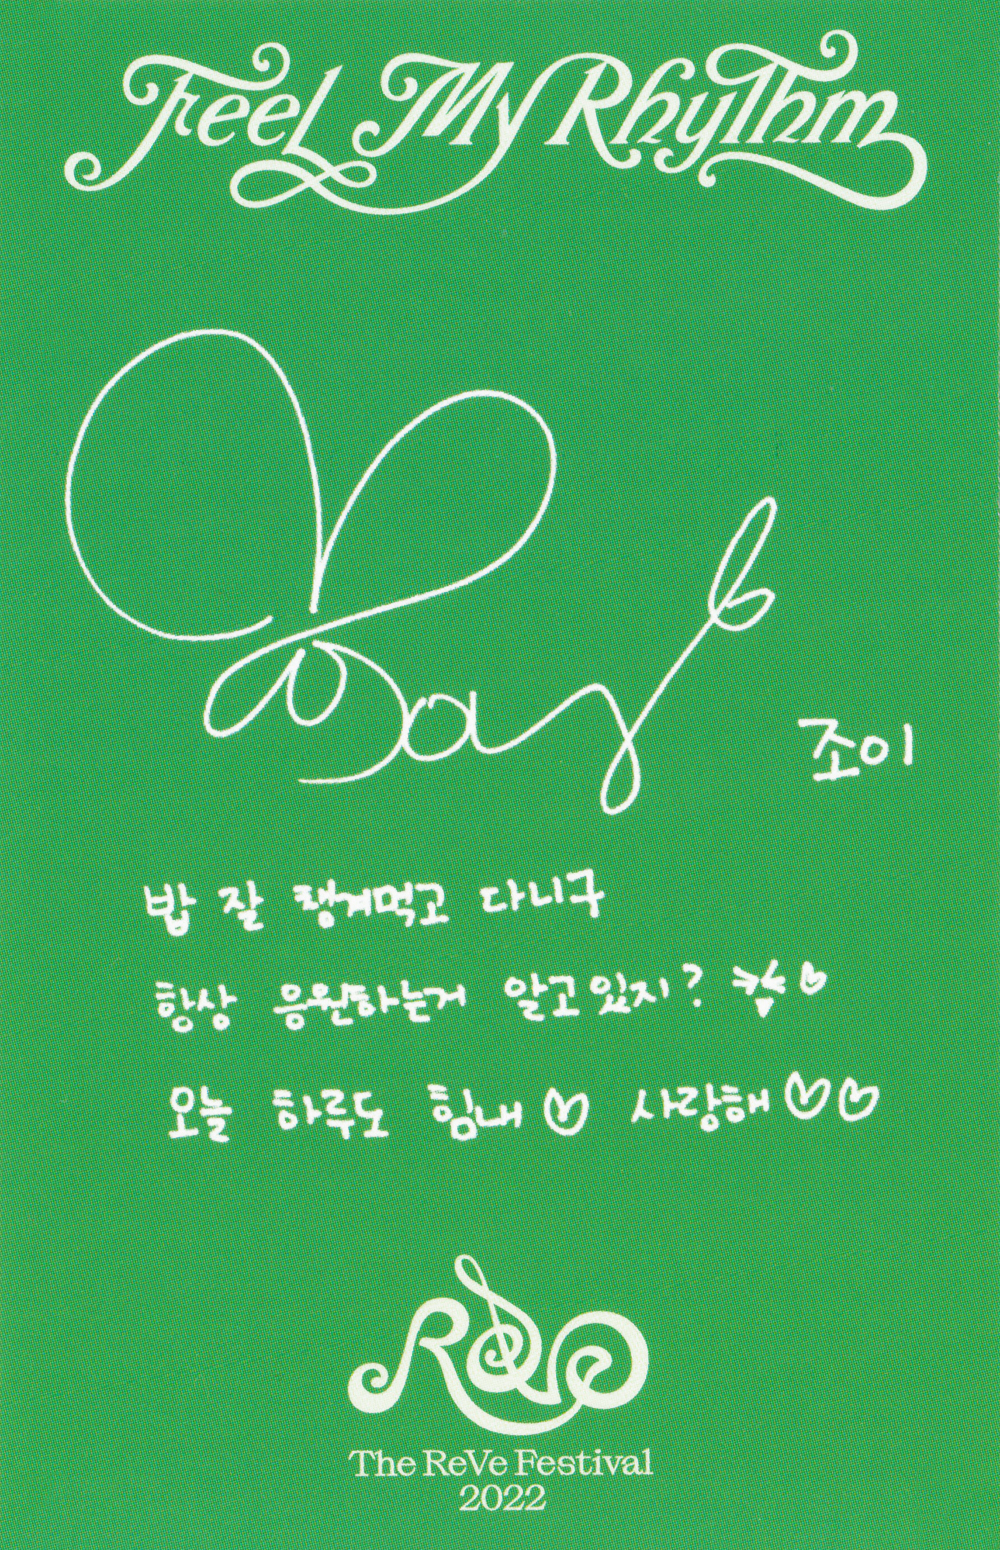 Feel My Rhythm
조이
밥 잘 챙겨먹고 다니구
항상 응원하는거 알고있지?
오늘 하루도 힘내♡ 사랑해♡♡
ReVe
The ReVe Festival
2022